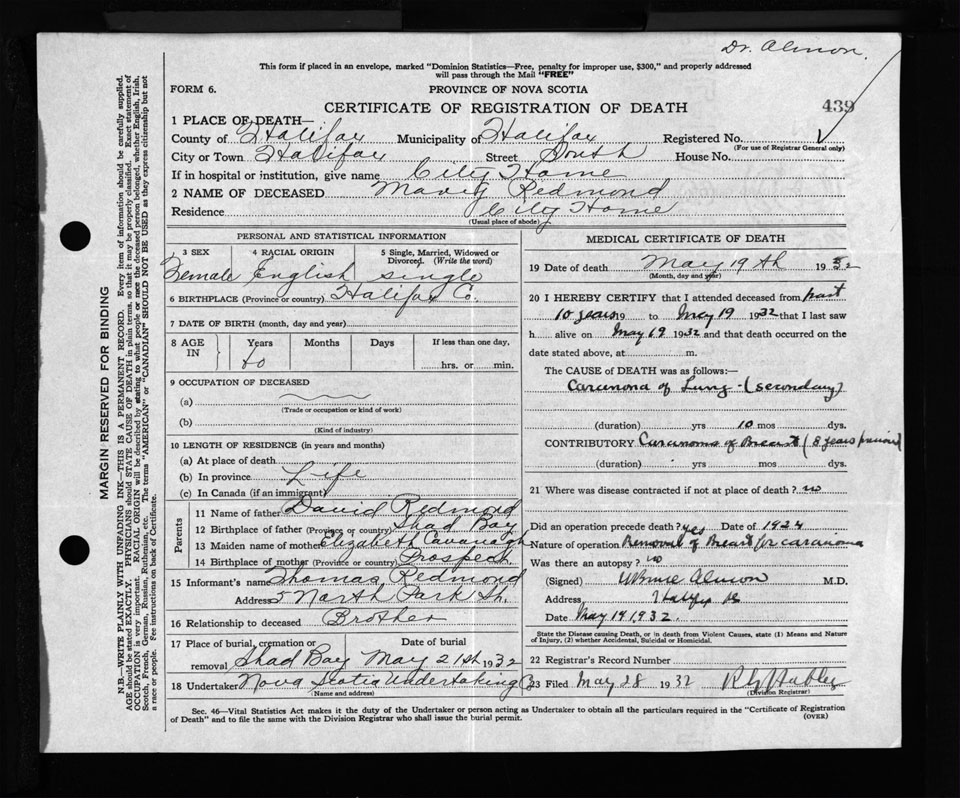 Dr. Almon
This form if placed in an envelope, marked "Dominion Statistics—Free, penalty for improper use, $300," and properly addressed
will pass through the Mail "FREE"
FORM 6.
PROVINCE OF NOVA SCOTIA
CERTIFICATE OF REGISTRATION OF DEATH
439
1 PLACE OF DEATH—
County of Halifax Municipality of Halifax Registered No.
(For use of Registrar General only)
City or Town Halifax Street South House No.
If in hospital or institution, give name City Home
2 NAME OF DECEASED Mary Redmond
Residence City Home
(Usual place of abode)
PERSONAL AND STATISTICAL INFORMATION
3 SEX 4 RACIAL ORIGIN 5 Single, Married, Widowed or
Divorced. (Write the word)
Female English single
6 BIRTHPLACE (Province or country) Halifax Co.
7 DATE OF BIRTH (month, day and year)
8 AGE IN Years Months Days If less than one day,
hrs. or min.
9 OCCUPATION OF DECEASED
(a)
(Trade or occupation or kind of work)
(b)
(Kind of industry)
10 LENGTH OF RESIDENCE (in years and months)
(a) At place of death
(b) In province Life
(c) In Canada (if an immigrant)
Parents
11 Name of father David Redmond
12 Birthplace of father (Province or country) Shad Bay
13 Maiden name of mother Elizabeth Cavanagh
14 Birthplace of mother (Province or country) Prospect
15 Informant's name Thomas Redmond
Address 5 North Park St.
16 Relationship to deceased Brother
17 Place of burial, cremation or Date of burial
removal Shad Bay May 21st 1932
18 Undertaker Nova Scotia Undertaking Co
(Name and address)
MEDICAL CERTIFICATE OF DEATH
19 Date of death May 19th 1932
(Month, day and year)
20 I HEREBY CERTIFY that I attended deceased from past
10 years 19 to May 19 1932 that I last saw
h alive on May 19 1932 and that death occurred on the
date stated above, at m.
The CAUSE of DEATH was as follows:—
Carcinoma of Lung - (secondary)
(duration) yrs 10 mos dys.
CONTRIBUTORY Carcinoma of Breast (8 years previous)
(duration) yrs mos dys.
21 Where was disease contracted if not at place of death? no
Did an operation precede death? Yes Date of 1924
Nature of operation Removal of Breast for carcinoma
Was there an autopsy? no
(Signed) W Bruce Almon M.D.
Address Halifax NS
Date May 19 1932.
State the Disease causing Death, or in death from Violent Causes, state (1) Means and Nature
of Injury, (2) whether Accidental, Suicidal or Homicidal.
22 Registrar's Record Number
23 Filed May 28 1932
(Division Registrar)
Sec. 46—Vital Statistics Act makes it the duty of the Undertaker or person acting as Undertaker to obtain all the particulars required in the "Certificate of Registration
of Death" and to file the same with the Division Registrar who shall issue the burial permit.
(OVER)
MARGIN RESERVED FOR BINDING
N.B.—WRITE PLAINLY WITH UNFADING INK—THIS IS A PERMANENT RECORD. Every item of information should be carefully supplied.
AGE should be stated EXACTLY. PHYSICIANS should STATE CAUSE OF DEATH in plain terms, so that it may be properly classified. Exact statement of
OCCUPATION is very important. RACIAL ORIGIN will be described by stating to what people or race the deceased person belonged, whether English, Irish,
Scotch, French, German, Russian, Ruthenian, etc. The terms "AMERICAN" or "CANADIAN" SHOULD NOT BE USED as they express citizenship but not
a race or people. See instructions on back of Certificate.